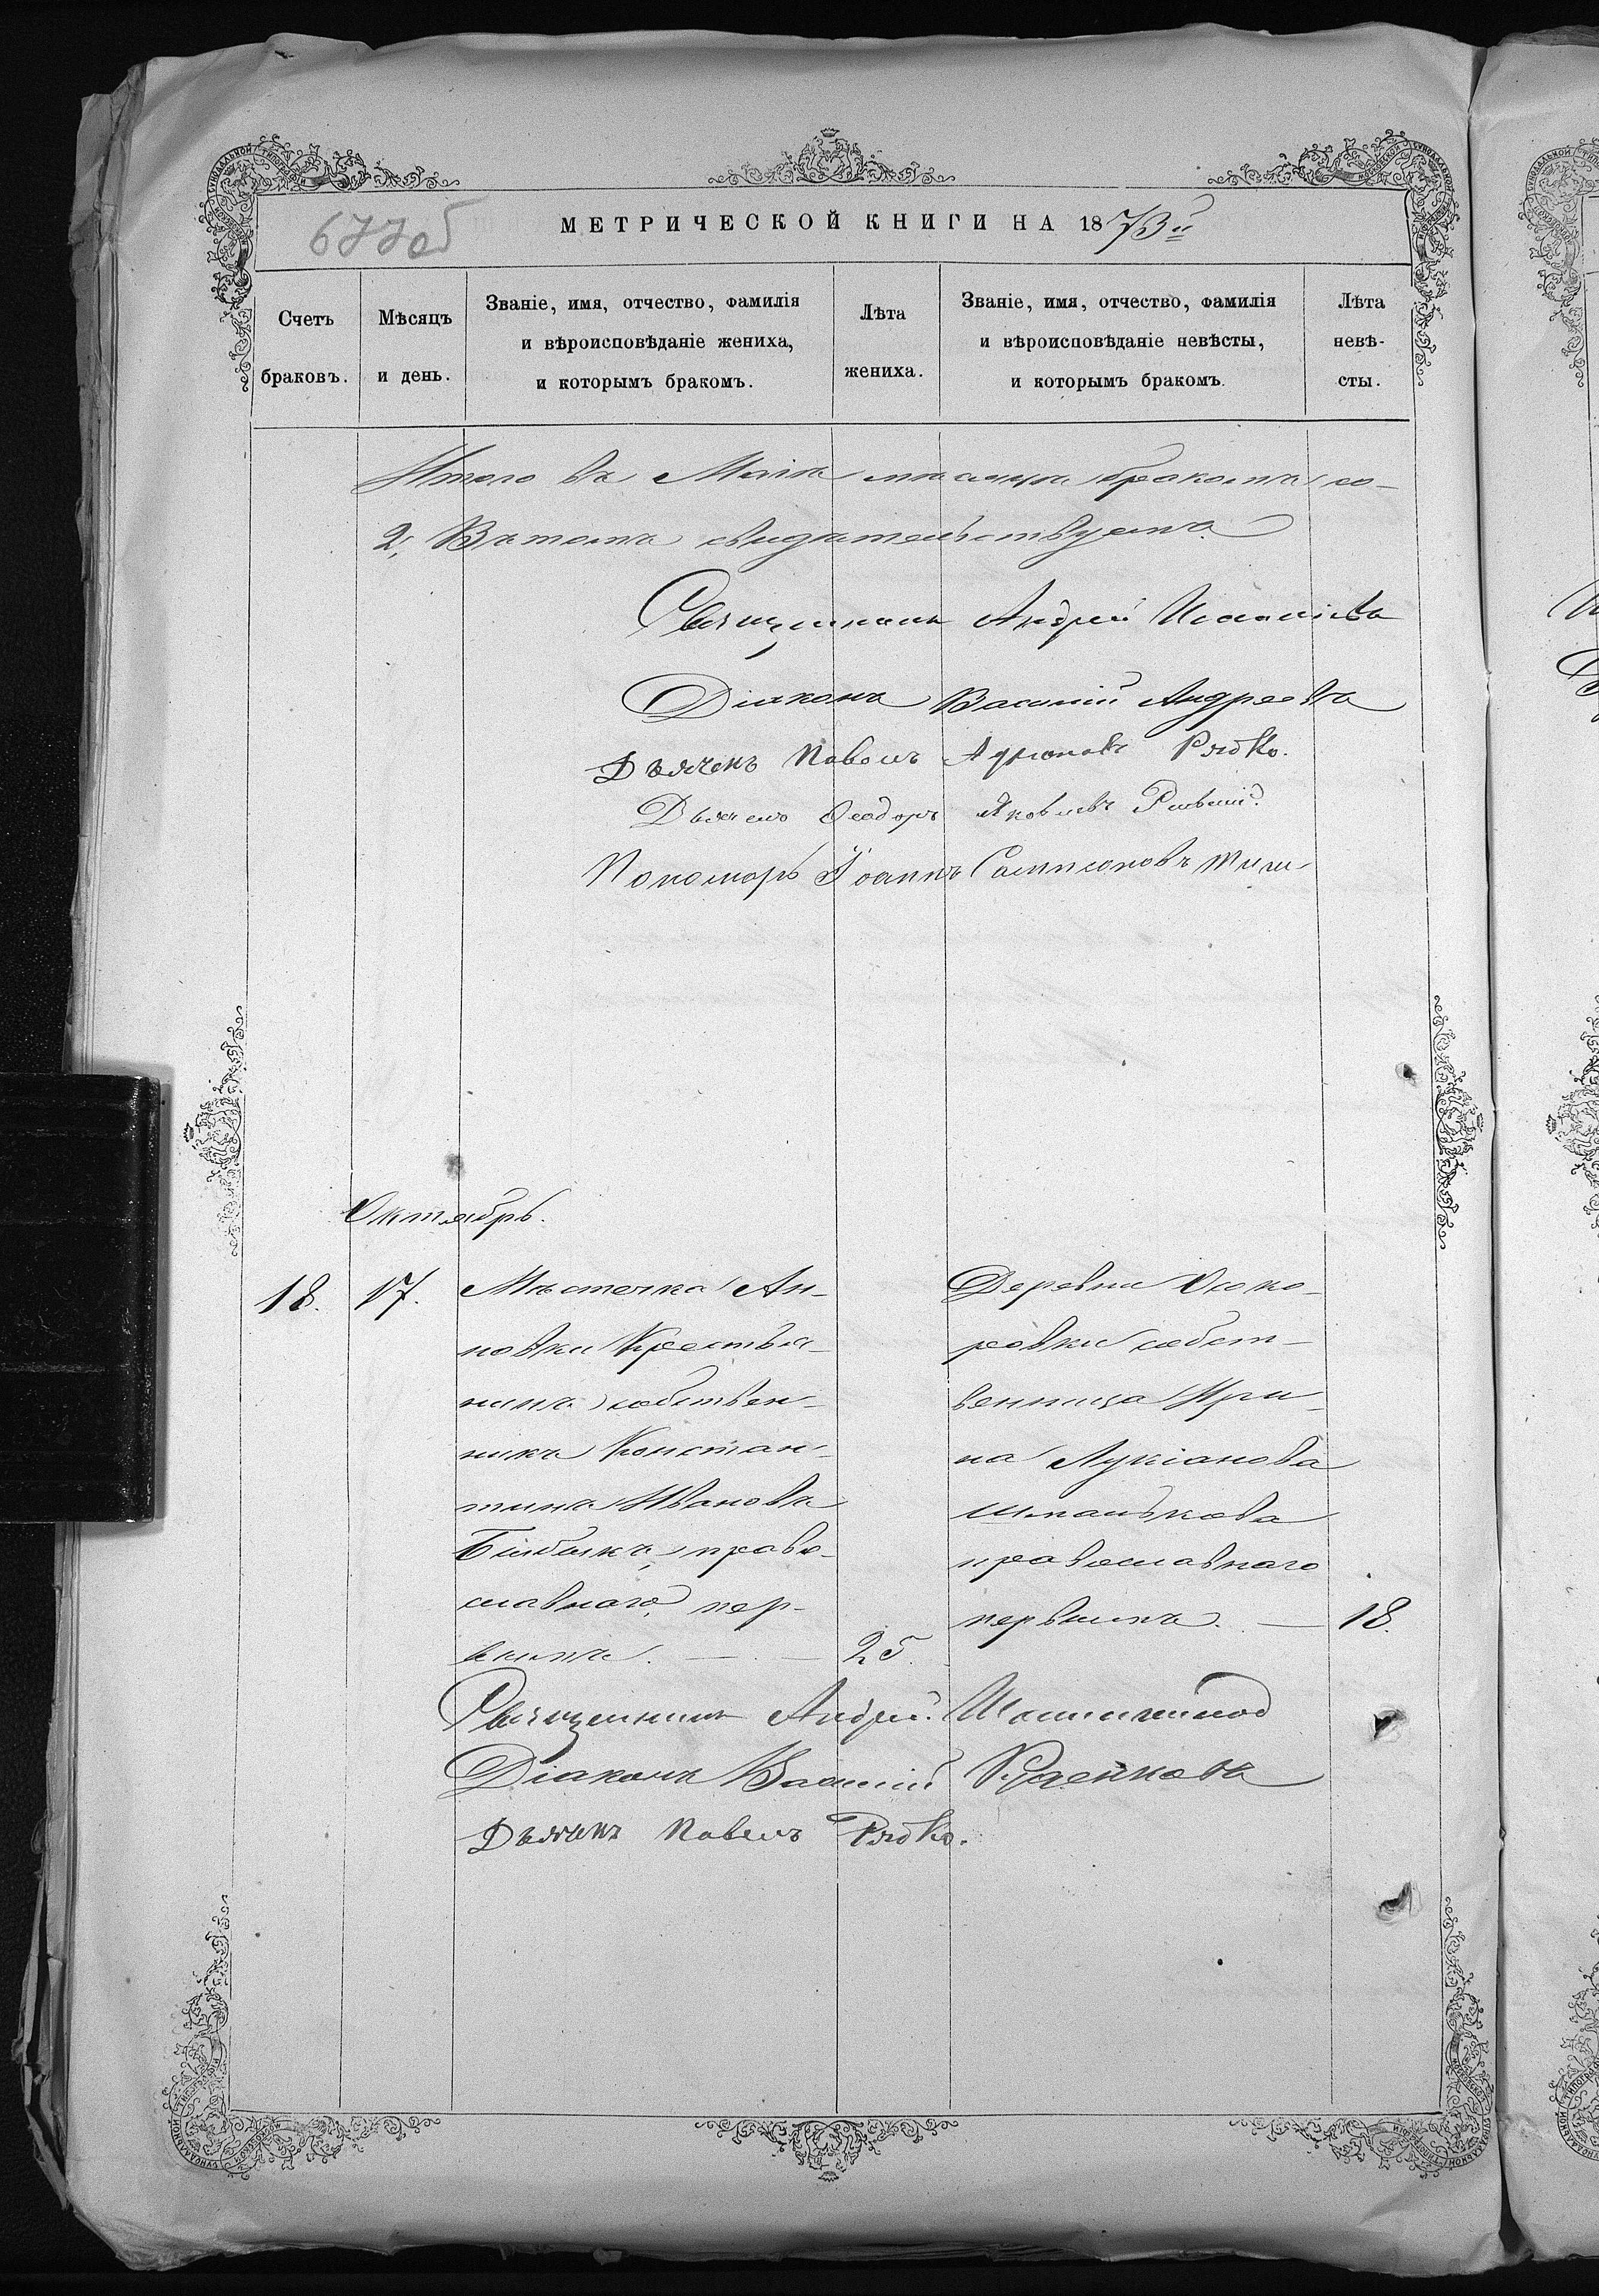 677об
МЕТРИЧЕСКОЙ КНИГИ НА 1873й
Счетъ браковъ.
Мѣсяцъ и день.
Званіе, имя, отчество, фамилія
и вѣроисповѣданіе жениха,
и которымъ бракомъ.
Лѣта жениха.
Званіе, имя, отчество, фамилія
и вѣроисповѣданіе невѣсты,
и которымъ бракомъ.
Лѣта невѣ-
сты.
Итого въ Маіѣ мѣсяцѣ бракомъ со-
2, Въ томъ свидѣтельствуемъ
Священникъ Андрей
Діаконъ Василій Андреевъ
Дьячекъ Павелъ Рябко.
Дьячекъ Ѳеодоръ Яковлевъ
Пономарь Іоаннъ Сампсоновъ
Октябрь.
18. 17.
Мѣстечка Ан-
новки Крестья-
нинъ собствен-
никъ Констан-
тинъ Ивановъ
право-
славнаго, пер-
вымъ. — — 25.
Деревни
ровки собст-
венница Ири-
на Лукіанова
православнаго
первымъ. — 18.
Священникъ Андрей
Діаконъ Василій
Дьячекъ Павелъ Рябко.